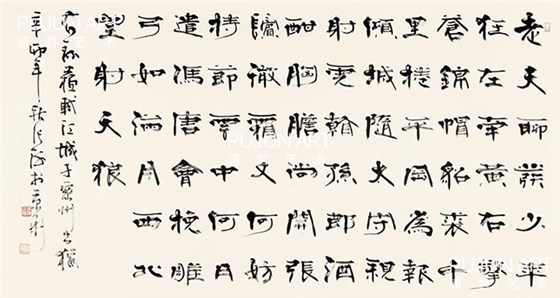 老夫聊發少年
狂左牽黃右擎
蒼錦帽貂裘千
里捲平岡為報
傾城隨太守親
射虎看孫郎酒
酣胸膽尚開張
鬢微霜又何妨
持節雲中何日
遣馮唐會挽雕
弓如滿月西北
望射天狼
右録蘇軾江城子密州出獵
辛卯年
PUJUN ART